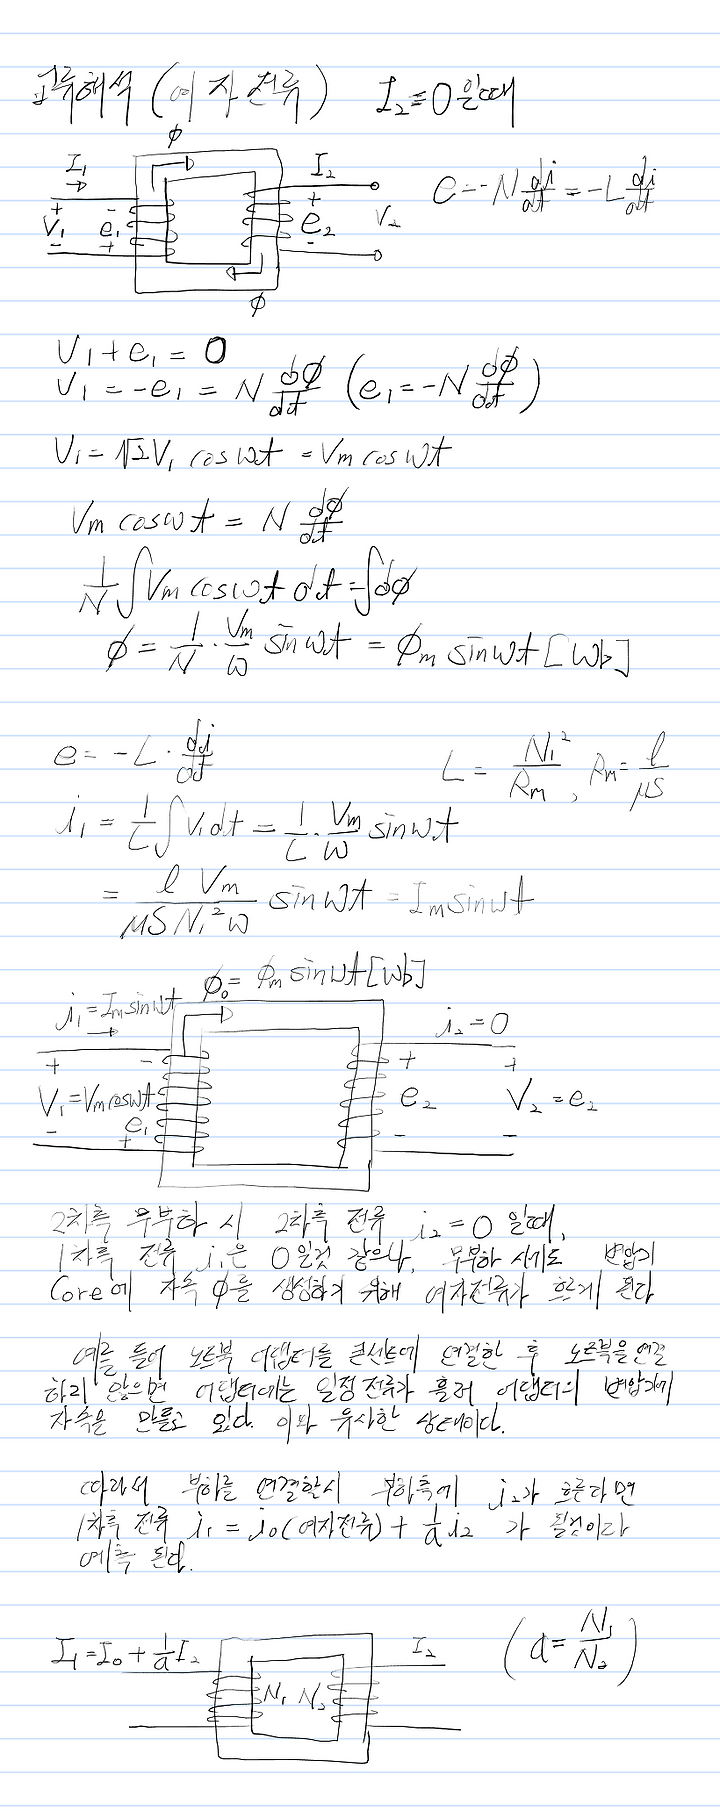 교류해석 (여자전류) I₂=0 일때
ϕ
I₁ I₂
+ - + 
V₁ e₁ e₂ V₂
- + -
ϕ
e=-N di/dt = -L di/dt
V₁+e₁=0
V₁=-e₁=N dϕ/dt (e₁=-N dϕ/dt)
V₁=√2V₁ cos wt = Vm cos wt
Vm cos wt = N dϕ/dt
1/N ∫Vm cos wt dt = ∫dϕ
ϕ = 1/N · Vm/w sin wt = ϕm sin wt [Wb]
e = -L · di/dt
L = N₁²/Rm, Rm = l/μS
i₁ = 1/L ∫V₁dt = 1/L · Vm/w sin wt
= l Vm/μS N₁² w sin wt = Im sin wt
ϕ₀ = ϕm sin wt [Wb]
i₁=Im sin wt i₂=0
+ - + +
V₁=Vm cos wt e₂ V₂=e₂
e₁
- + - -
2차측 무부하 시 2차측 전류 i₂=0 일때,
1차측 전류 i₁은 0일것 같으나, 무부하 시기도 변압기
Core에 자속 ϕ을 생성하기 위해 여자전류가 흐르게 된다
예를 들어 노트북 어댑터를 콘센트에 연결한 후 노트북을 연결
하지 않으면 어댑터에는 일정전류가 흘러 어댑터의 변압기에
자속을 만들고 있다. 이와 유사한 상태이다.
따라서 부하를 연결할시 부하측에 i₂가 흐른다면
1차측 전류 i₁ = i₀(여자전류) + 1/a i₂ 가 될것이라
예측 된다.
I₁=I₀+1/a I₂ I₂
N₁ N₂
(a = N₁/N₂)